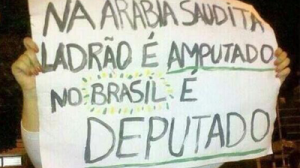 NA ARABIA SAUDITA
LADRÃO É AMPUTADO
NO BRASIL É
DEPUTADO